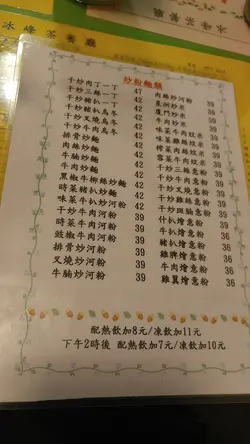 冰峰茶餐廳
炒粉麵類
干炒肉丁一丁 47
干炒三絲一丁 42
干炒豬扒一丁 42
干炒豬扒烏冬 42
干炒叉燒烏冬 42
排骨炒麵 42
肉絲炒麵 42
牛腩炒麵 42
牛肉炒麵
黑椒牛柳絲炒麵 42
時菜豬扒炒麵 42
味菜牛扒炒河粉 42
干炒牛肉河粉 39
時菜牛肉河粉 39
豉椒牛肉河粉 39
排骨炒河粉 39
叉燒炒河粉 39
牛腩炒河粉 39
肉絲炒河粉 36
星洲炒米 39
廈門炒米 39
牛肉炒米 39
味菜牛肉炆米 39
味菜雞絲炆米 39
榨菜肉絲炆米 39
雪菜肉絲炆米 39
干炒三絲意粉 39
干炒牛肉意粉 39
干炒叉燒意粉 39
干炒雞絲意粉 39
干炒斑腩意粉 39
什扒燴意粉 39
豬扒燴意粉 39
雞脾燴意粉 39
牛肉燴意粉 39
雞翼燴意粉 39
配熱飲加8元/凍飲加11元
下午2時後 配熱飲加7元/凍飲加10元